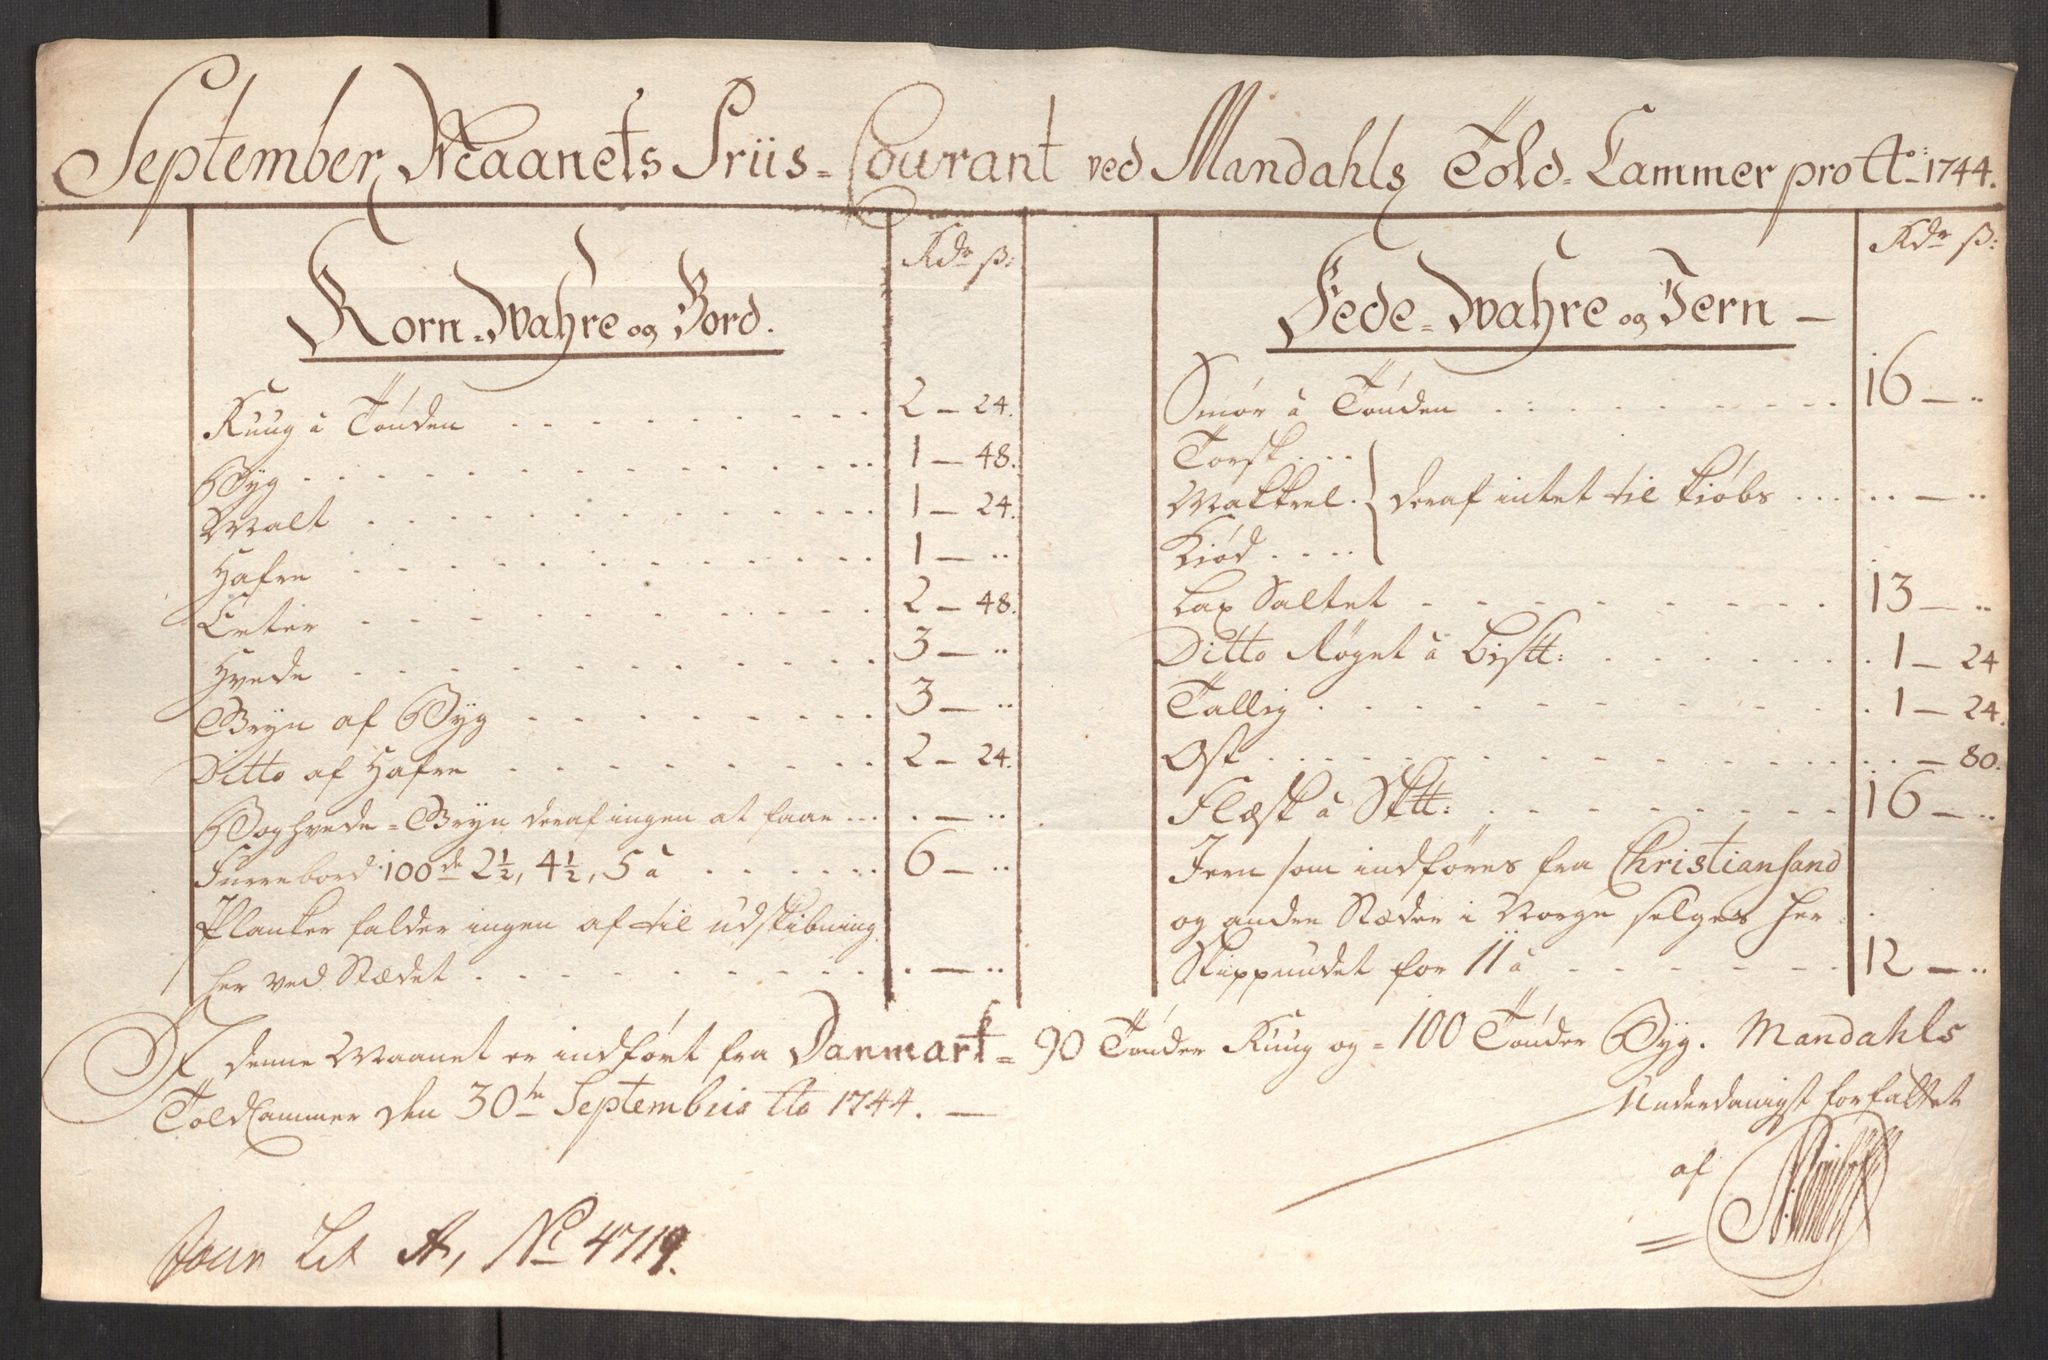 September Maanets Priis-Courant ved Mandahls Told-Cammer pro Ao: 1744.
Rdr ß:
Korn-Wahre og Bord.
Ruug à Tønden 2 — 24.
Byg 1 — 48.
Malt 1 — 24.
Hafre 1 — ..
Erter 2 — 48.
Hvede 3 — ..
Gryn af Byg 3 — ..
Ditto af Hafre 2 — 24.
Boghvede-Gryn deraf ingen at faae . — ..
Furrebord 100de 2½, 4½, 5 à 6 — ..
Planker falder ingen af til udskibning
her ved Stædet . — ..
Rdr ß:
Fede-Wahre og Jern —
Smør à Tønden 16 — ..
Torsk
Makkrel } deraf intet til kiøbs .. — ..
Kiød
Lax Saltet 13 — ..
Ditto Røget à Bistt: 1 — 24
Tallig 1 — 24.
Ost — 80.
Flæsk à Sktt: 16 — ..
Jern som indføres fra Christiansand
og andre Stæder i Norge selges her
Skippundet for 11 à 12 — ..
I denne Maanet er indført fra Danmark = 90 Tønder Ruug og = 100 Tønder Byg. Mandahls
Told Cammer den 30te Septembris Ao 1744. —
Underdanigst forfattet
af
Jour Lit A, No 4719.